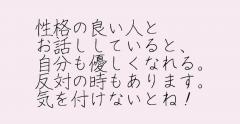 性格の良い人と
お話ししていると、
自分も優しくなれる。
反対の時もあります。
気を付けないとね！